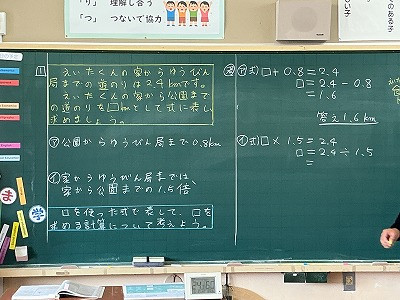 「り」 理解し合う
「つ」 つないで協力
1
えいたくんの家からゆうびん
局までの道のりは2.4kmです。
えいたくんの家から公園まで
の道のりを□kmとして式に表し、
求めましょう。
㋐ 公園からゆうびん局まで0.8km
㋑ 家からゆうびん局までは、
家から公園までの1.5倍
□を使った式で表して、□を
求める計算について考えよう。
㋐ 式) □+0.8=2.4
□=2.4-0.8
=1.6
答え1.6km
㋑ 式) □×1.5=2.4
□=2.4÷1.5
=
ま
学